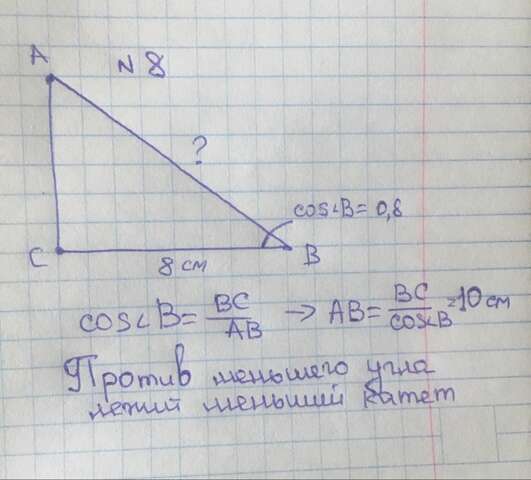 A
N 8
?
cos∠B = 0,8
C
8 см
B
cos∠B = BC/AB → AB = BC/cos∠B = 10 см
Против меньшего угла
лежит меньший катет